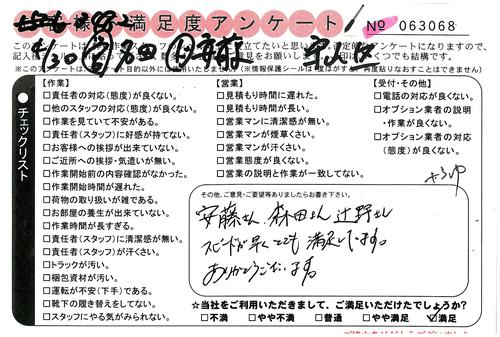 満足度アンケート
No 063068
【作業】
□責任者の対応(態度)が良くない。
□他のスタッフの対応(態度)が良くない。
□作業を見ていて不安がある。
□責任者(スタッフ)に好感が持てない。
□お客様への挨拶が出来ていない。
□ご近所への挨拶・気遣いが無い。
□作業開始前の内容確認がなかった。
□作業開始時間が遅れた。
□荷物の取り扱いが雑である。
□お部屋の養生が出来ていない。
□作業時間が長すぎる。
□責任者(スタッフ)に清潔感が無い。
□責任者(スタッフ)が汗くさい。
□トラックが汚い。
□梱包資材が汚い。
□運転が不安(下手)である。
□靴下の履き替えをしてない。
□スタッフにやる気がみられない。
【営業】
□見積もり時間に遅れた。
□見積もり時間が長い。
□営業マンに清潔感が無い。
□営業マンが煙草くさい。
□営業マンが汗くさい。
□営業態度が良くない。
□営業の説明と作業が一致してない。
【受付・その他】
□電話の対応が良くない。
□オプション業者の説明
・作業が良くない。
□オプション業者の対応
(態度)が良くない。
チェックリスト
その他、ご意見・ご要望等ありましたらお書き下さい。
安藤さん 森田さん 辻野さん
スピードが早くとても満足しています。
ありがとうございます。
☆当社をご利用いただきまして、ご満足いただけたでしょうか?
□不満 □やや不満 □普通 □やや満足 ☑満足